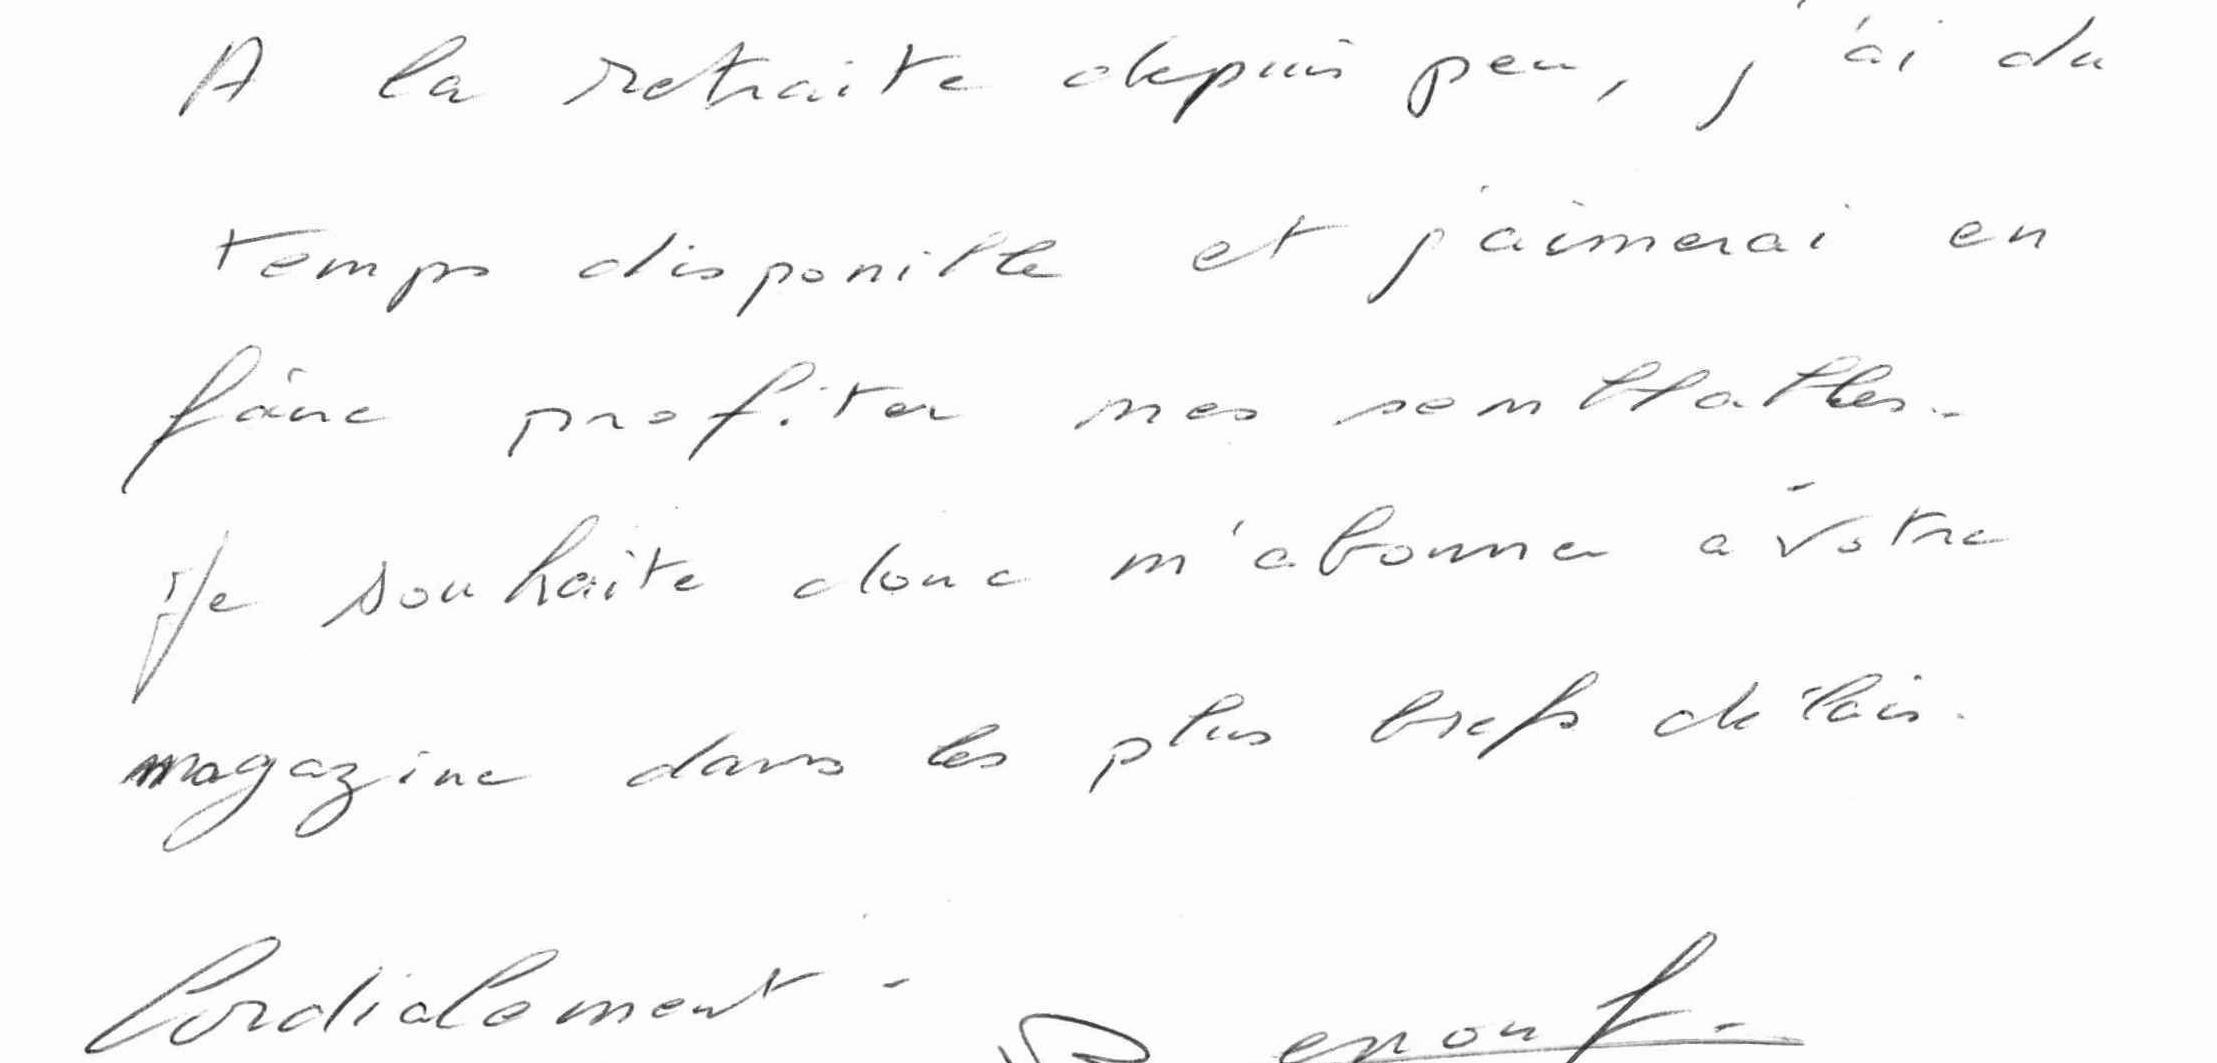 A la retraite depuis peu, j'ai du
temps disponible et j'aimerai en
faire profiter mes semblables.
Je souhaite donc m'abonner à votre
magazine dans les plus brefs délais.
Cordialement -
Renouf -